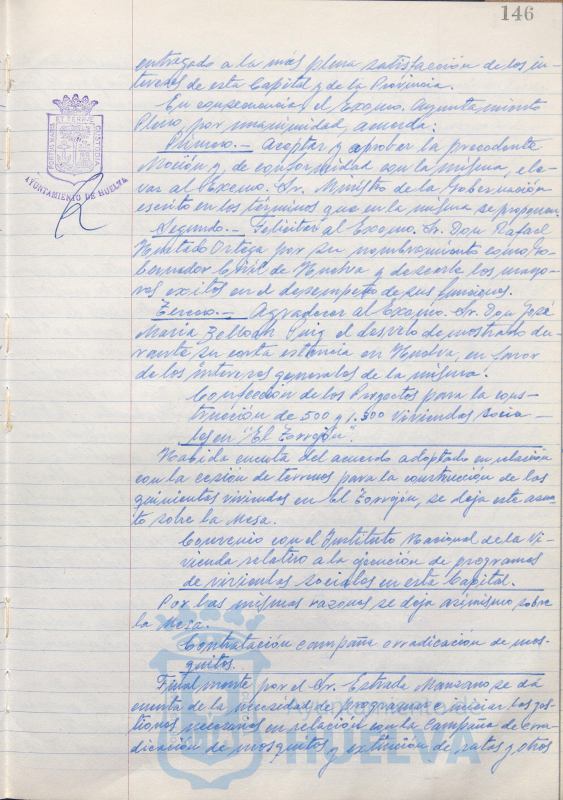 146
entregado a la más plena satisfacción de los in-
tereses de esta Capital y de la Provincia.
En consecuencia, el Excmo. Ayuntamiento
Pleno, por unanimidad, acuerda:
Primero.- Aceptar y aprobar la precedente
Moción y, de conformidad con la misma, ele-
var al Excmo. Sr. Ministro de la Gobernación
escrito en los términos que en la misma se proponen.
Segundo.- Felicitar al Excmo. Sr. Don Rafael
Hurtado Ortega por su nombramiento como Go-
bernador Civil de Huelva y desearle los mayo-
res exitos en el desempeño de sus funciones.
Tercero.- Agradecer al Excmo. Sr. Don José
María Puig el desvelo demostrado du-
rante su corta estancia en Huelva, en favor
de los intereses generales de la misma.
Confección de los Proyectos para la cons-
trucción de 500 y 1.500 viviendas socia-
les en "El Torrejón".
Habida cuenta del acuerdo adoptado en relación
con la cesión de terrenos para la construcción de las
quinientas viviendas en El Torrejón, se deja este asun-
to sobre la Mesa.
Convenio con el Instituto Nacional de la Vi-
vienda relativo a la ejecución de programas
de viviendas sociales en esta Capital.
Por las mismas razones se deja asimismo sobre
la Mesa.
Contratación campaña erradicacion de mos-
quitos.
Finalmente por el Sr. Estrada Manzano se da
cuenta de la necesidad de programar e iniciar las ges-
tiones necesarias en relación con la Campaña de erra-
dicación de mosquitos y extinción de ratas y otros
AYUNTAMIENTO DE HUELVA
HUELVA